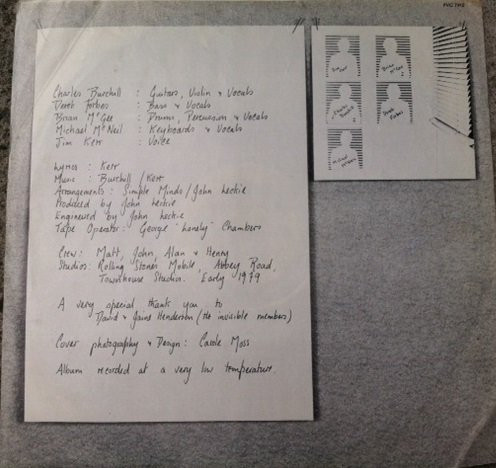 Charles Burchill : Guitars, Violin & Vocals
Derek Forbes : Bass & Vocals
Brian McGee : Drums, Percussion & Vocals
Michael McNeil : Keyboards & Vocals
Jim Kerr : Voice
Lyrics : Kerr
Music : Burchill / Kerr
Arrangements : Simple Minds / John Leckie
Produced by John Leckie
Engineered by John Leckie
Tape Operator : George "Lovely" Chambers
Crew : Matt, John, Alan & Henry
Studios : Rolling Stones Mobile, Abbey Road,
Townhouse Studios. Early 1979
A very special thank you to
David & Jaine Henderson (the invisible members)
Cover photography & Design : Carole Moss
Album recorded at a very low temperature
Jim Kerr
Brian McGee
Charles Burchill
Derek Forbes
Michael McNeil